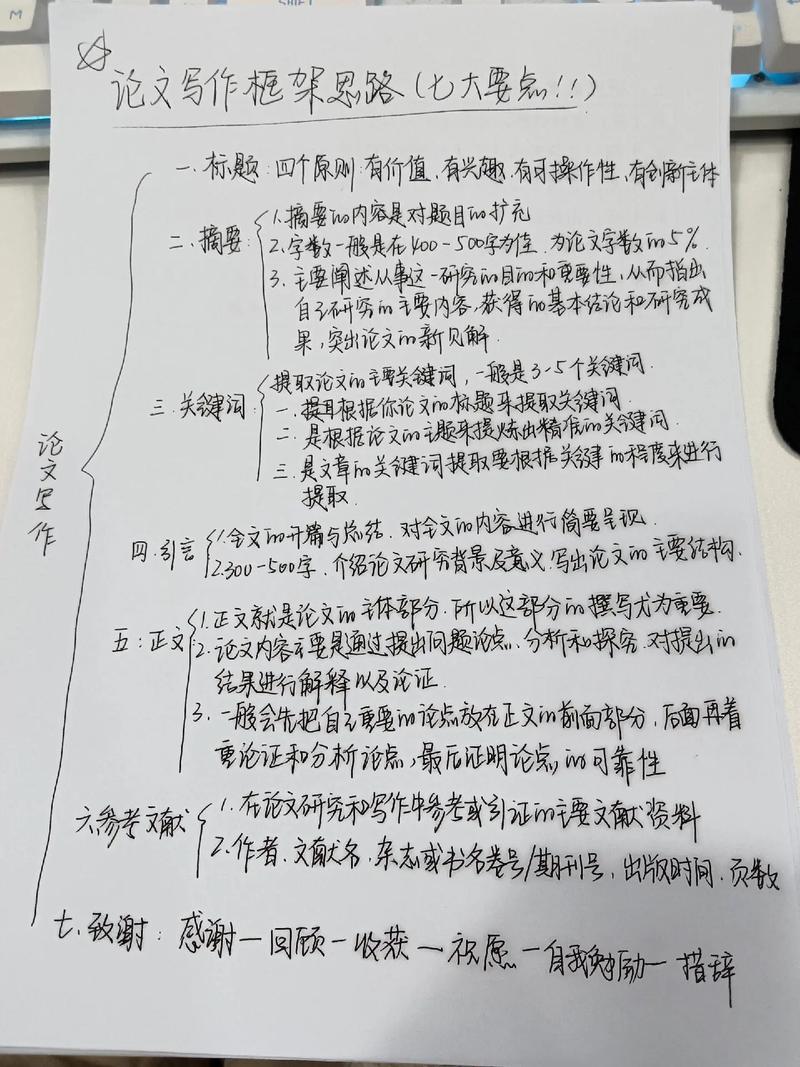 论文写作框架思路(七大要点!!)
论文写作
一、标题:四个原则:有价值、有兴趣、有可操作性、有创新主体
二、摘要:
1.摘要的内容是对题目的扩充
2.字数一般是在400-500字为佳,为论文字数的5%.
3.主要阐述从事这一研究的目的和重要性,从而指出
自己研究的主要内容,获得的基本结论和研究成
果,突出论文的新见解.
三、关键词:
提取论文的主要关键词,一般是3-5个关键词.
一.提取根据你论文的标题来提取关键词.
二.是根据论文的主题来提炼出精准的关键词.
三.是文章的关键词提取要根据关键的程度来进行
提取.
四.引言
1.全文的开篇与总结.对全文的内容进行简要呈现.
2.300-500字.介绍论文研究背景及意义.写出论文的主要结构.
五:正文
1.正文就是论文的主体部分.所以这部分的撰写尤为重要.
2.论文内容主要是通过提出问题论点、分析和探究.对提出的
结果进行解释以及论证.
3.一般会先把自己重要的论点放在正文的前面部分,后面再着
重论证和分析论点,最后证明论点的可靠性
六参考文献
1.在论文研究和写作中参考或引证的主要文献资料
2.作者、文献名、杂志或书名卷号/期刊号,出版时间.页数
七.致谢:感谢—回顾—收获—祝愿—自我勉励—措辞